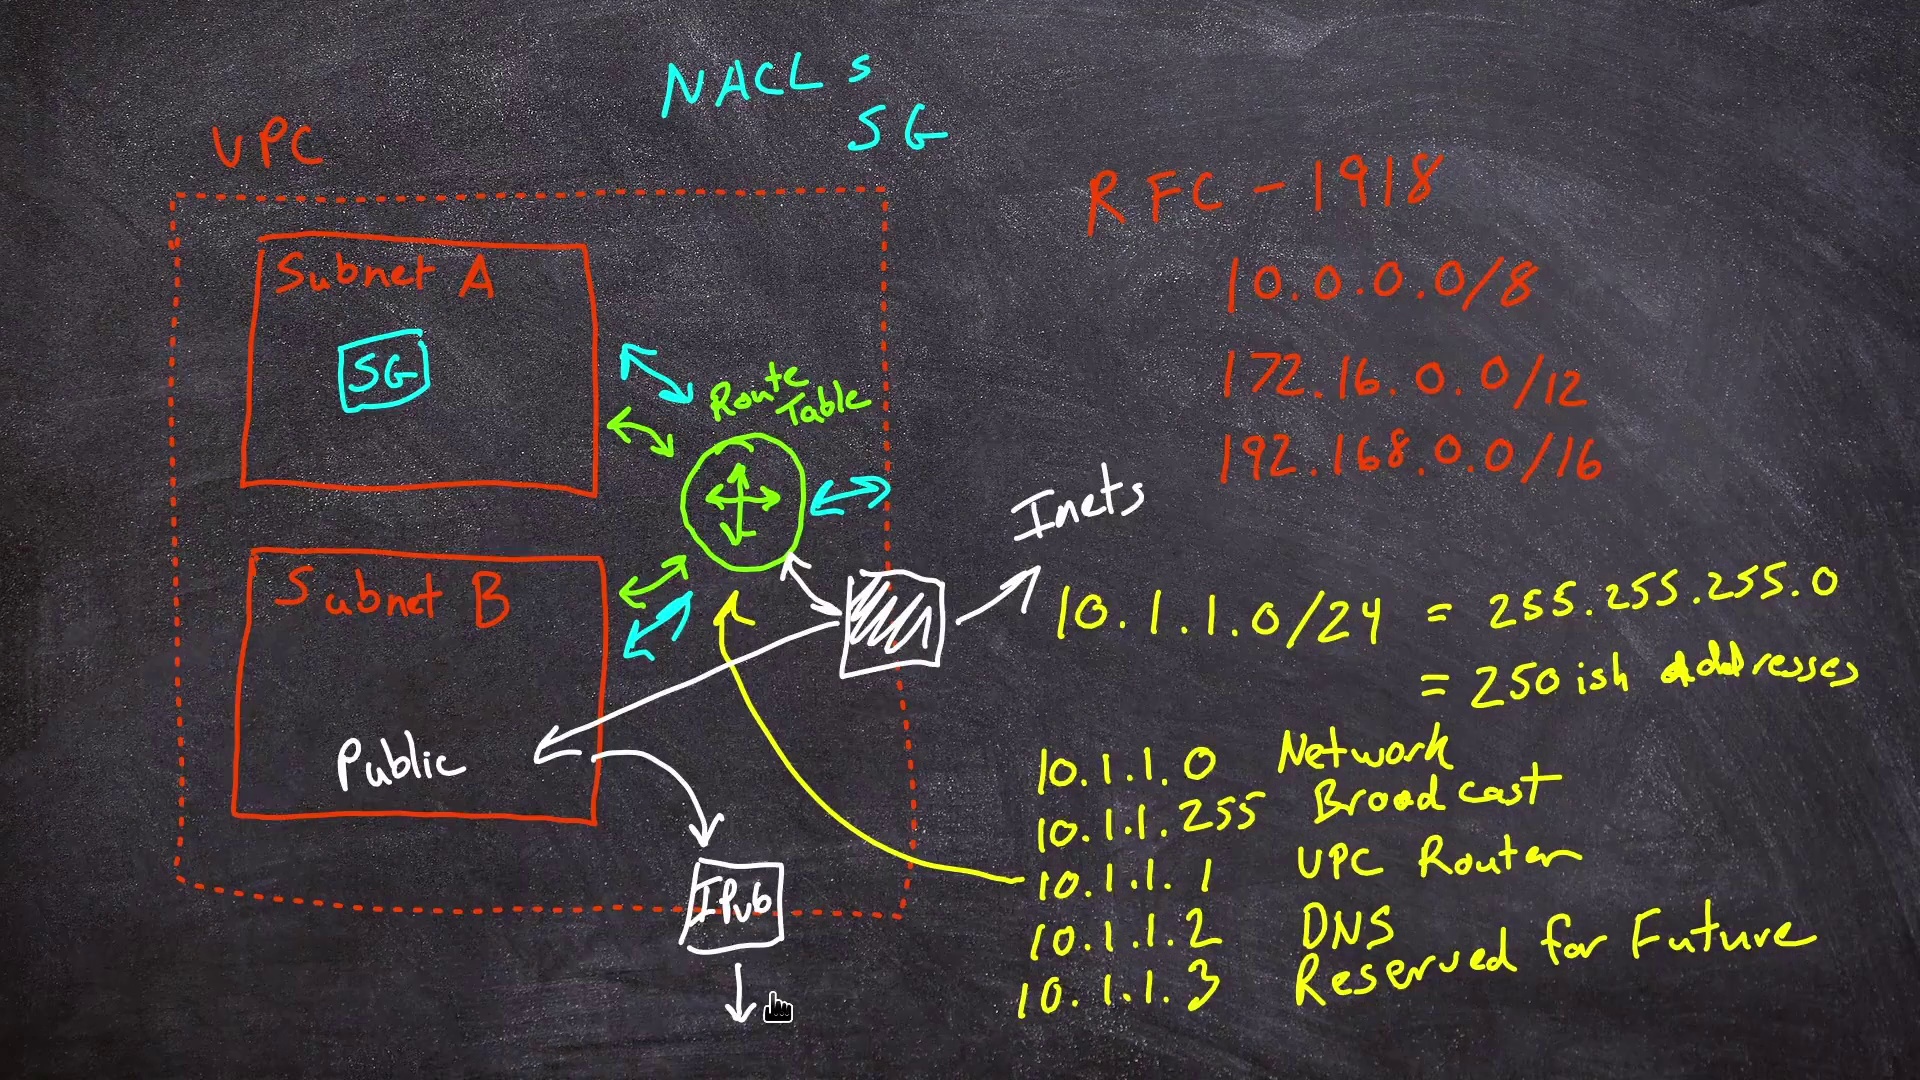 NACLs
SG
VPC
Subnet A
SG
Route
Table
Subnet B
Public
IPub
Inets
RFC - 1918
10.0.0.0/8
172.16.0.0/12
192.168.0.0/16
10.1.1.0/24 = 255.255.255.0
= 250ish addresses
10.1.1.0 Network
10.1.1.255 Broadcast
10.1.1.1 VPC Router
10.1.1.2 DNS
10.1.1.3 Reserved for Future